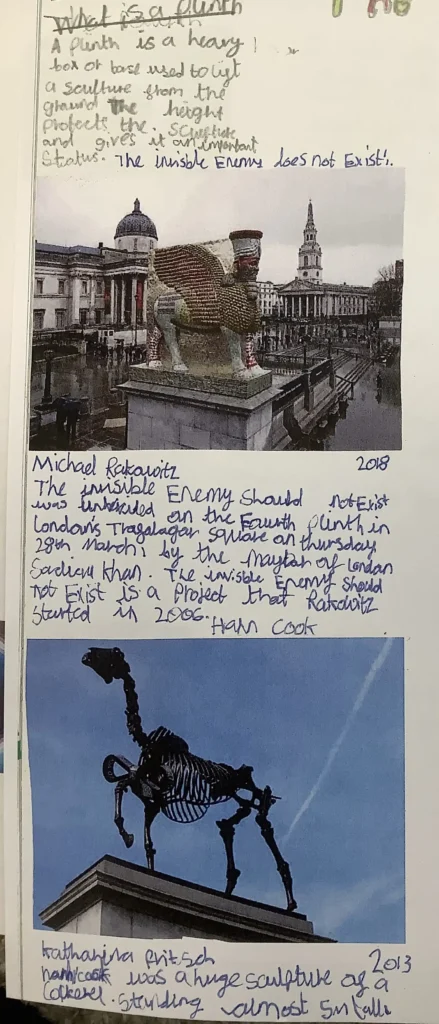 What is a plinth
A plinth is a heavy
box or base used to lift
a sculture from the
ground the height
protects the sculpture
and gives it an important
status. The invisble Enemy does not Exist'.
Michael Rakowitz 2018
The invisible Enemy should not Exist
was unveiled on the Fourth plinth in
London's Tragalagar square on thursday
28th March, by the of London
Khan. The invisible Enemy should
not Exist is a Project that Rakowitz
started in 2006.
Hahn Cook
Katharina fritsch 2013
hahn/cook was a huge sculpture of a
cockerel. Standing almost 5m tall